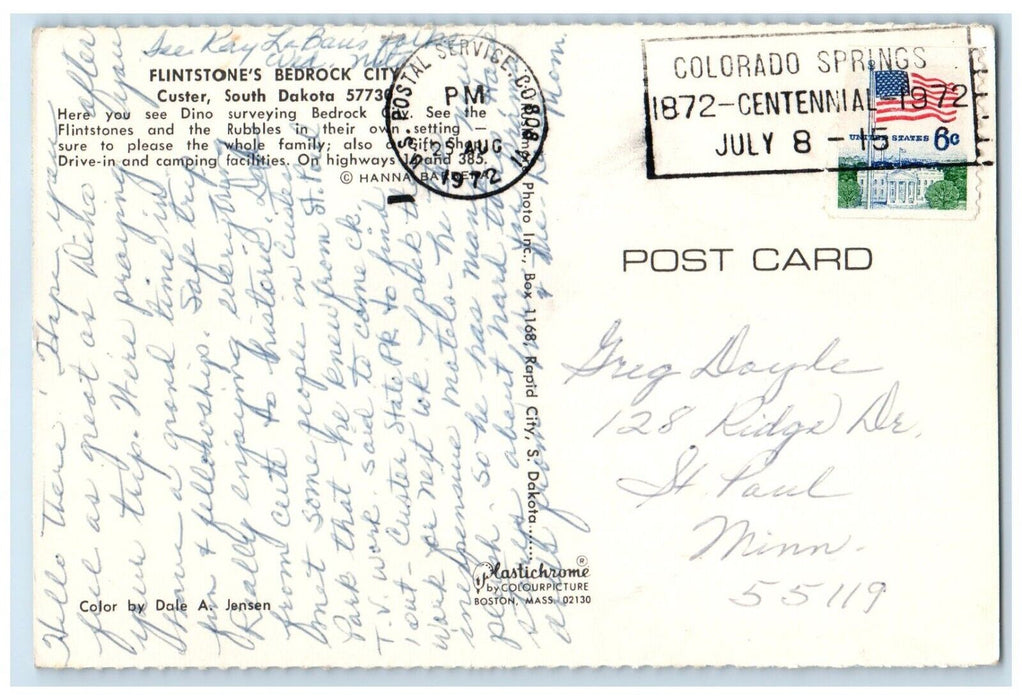 See Ray LaBau's
FLINTSTONE'S BEDROCK CITY
Custer, South Dakota 57730
Here you see Dino surveying Bedrock City. See the
Flintstones and the Rubbles in their own setting —
sure to please the whole family; also a Gift Shop,
Drive-in and camping facilities. On highways 16 and 385.
© HANNA BARBERA
Hello there! Hope you
feel as great as Dino after
your trip. We're praying you
have a grand time in
fun & fellowship. Safe trip.
Really enjoying everything
from cute to historic. Dad
met some people in Custer
Park that he knew from St. Paul
T.V. work. Said to come ck.
out - Custer State Pk to find
work for next wk.
inexpensive motel so he
plush. So he has
about
Mom.
Color by Dale A. Jensen
Photo Inc., Box 1168, Rapid City, S. Dakota
Plastichrome®
by COLOURPICTURE
BOSTON, MASS. 02130
US POSTAL SERVICE, CO 808
PM
25 AUG
1972
COLORADO SPRINGS
1872-CENTENNIAL-1972
JULY 8 - 15
UNITED STATES 6c
POST CARD
Greg Doyle
128 Ridge Dr.
St. Paul
Minn.
55119